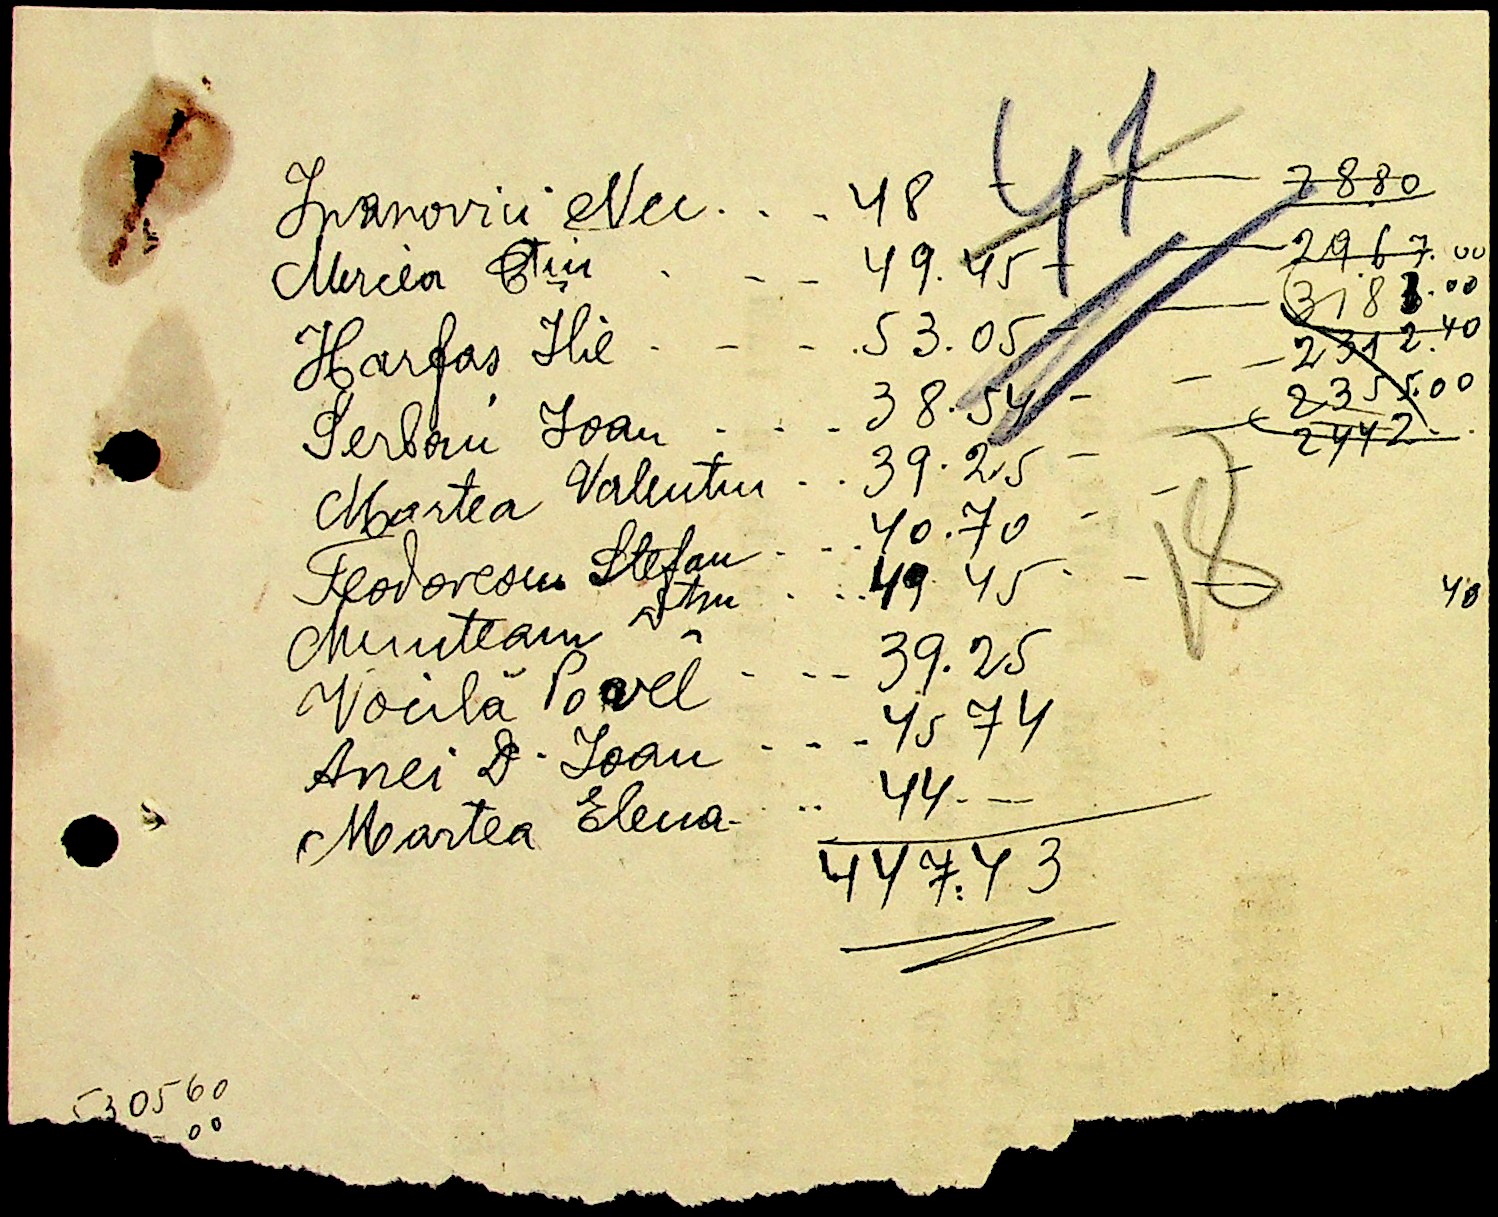 41
Ivanovici Nec. . . - 48 - 2880
Mercea Ctin . - - - 49.45 - 2967.00
Harfas Ilie - - - . 53.05 - 3183.00
Serban Ioan - - - 38.54 - 2312.40
Martea Valentin . . . 39.25 - 2355.00
Teodorescu Stefan - - - 40.70 - 2442
18
Munteanu Dtru . . . 49 45 - 40
Voicilă Pavel - - - 39.25
Anei D. Ioan - - - 45 74
Martea Elena - .. 44.—
447.43
530560
00